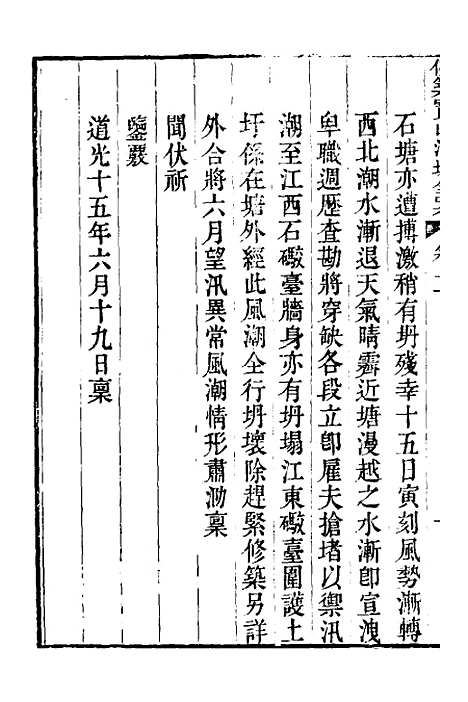 石塘亦遭搏激稍有坍殘幸十五日寅刻風勢漸轉
西北潮水漸退天氣晴霽近塘漫越之水漸卽宣洩
卑職週歷查勘將穿缺各段立卽雇夫搶堵以禦汛
潮至江西石礮臺牆身亦有坍塌江東礮臺圍護土
圩係在塘外經此風潮全行坍壞除趕緊修築另詳
外合將六月望汛異常風潮情形肅泐稟
聞伏祈
鑒覈
道光十五年六月十九日稟